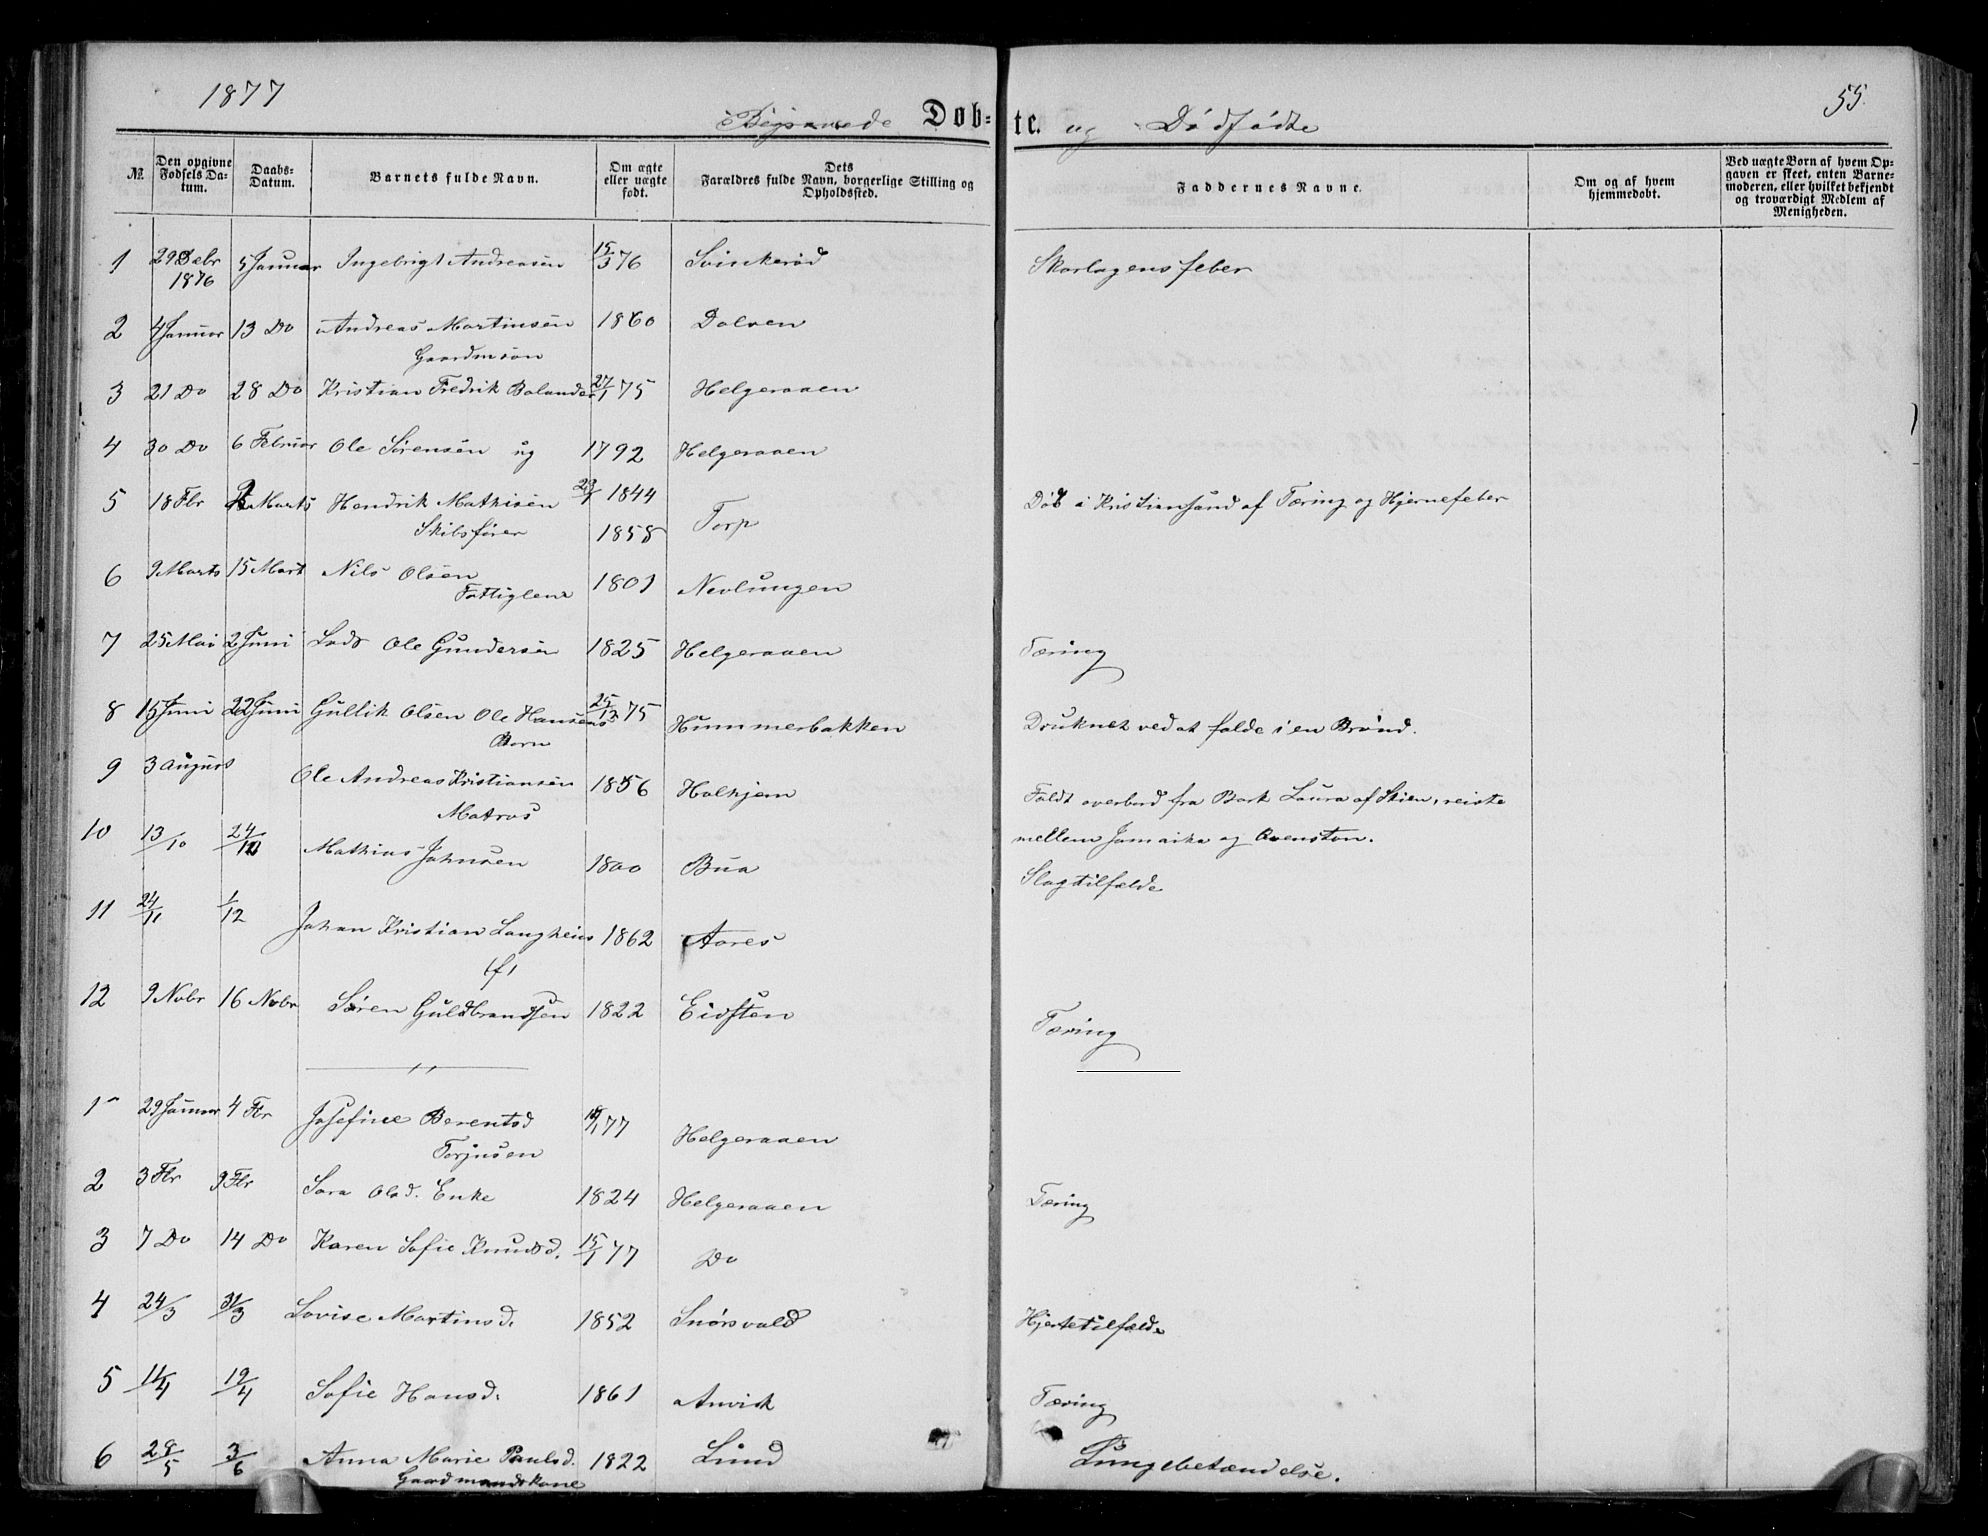 1877
55.
Begravede Døb-te. og Dødfødte
№
Den opgivne Fødsels Datum.
Daabs-Datum.
Barnets fulde Navn.
Om ægte eller uægte født.
Dets Farældres fulde Navn, borgerlige Stilling og Opholdssted.
Faddernes Navne.
Om og af hvem hjemmedøbt.
Ved uægte Børn af hvem Opgaven er skeet, enten Barnemoderen, eller hvilket bekjendt og troværdigt Medlem af Menigheden.
1 29 Debr 1876 5 Januar Ingebrigt Andreasen 15/3 76 Svinkerød Skarlagensfeber
2 4 Januar 13 Do Andreas Martinsen 1860 Dolven
Gaardmsøn
3 21 Do 28 Do Kristian Fredrik Bolander 27/1 75 Helgeraaen
4 30 Do 6 Februar Ole Sørensen ug 1792 Helgeraaen
5 18 Fbr Marts Hendrik Mathisen 1844 Død i Kristiansand af Tæring og Hjernefeber
Skibsfører 1858 Torp
6 9 Marts 15 Mart Nils Olsen 1801 Nevlungen
Fattiglem
7 25 Mai 2 Juni Lods Ole Gundersen 1825 Helgeraaen Tæring
8 15 Juni 22 Juni Gullik Olsen Ole Hansens 25/12 75 Hummerbakken Druknet ved at falde i en Brønd.
Barn
9 3 August Ole Andreas Kristiansen 1856 Halhjem Faldt overbord fra Bark Laura af Skien, reiste
Matros mellem Jamaika og
10 13/10 24/10 Mathias Johnsen 1800 Bua Slagtilfælde
11 24/11 1/12 Johan Kristian Langheim 1862 Aares
(f)
12 9 Nobr 16 Nobr Søren Guldbrandsen 1822 Eidsten Tæring
1 29 Januar 4 Fbr Josefine Berentsd 77 Helgeraaen
Torjusen
2 3 Fbr 9 Fbr Sara Olsd. Enke 1824 Helgeraaen Tæring
3 7 Do 14 Do Karen Sofie Knudsd. 15/1 77 Do
4 24/3 31/3 Lovise Martinsd. 1852 Snørsvald Hjertetilfælde
5 11/4 19/4 Sofie Hansd. 1861 Anvik Tæring
6 28/5 3/6 Anna Marie Paulsd. 1822 Lund Lungebetændelse.
Gaardmandskone